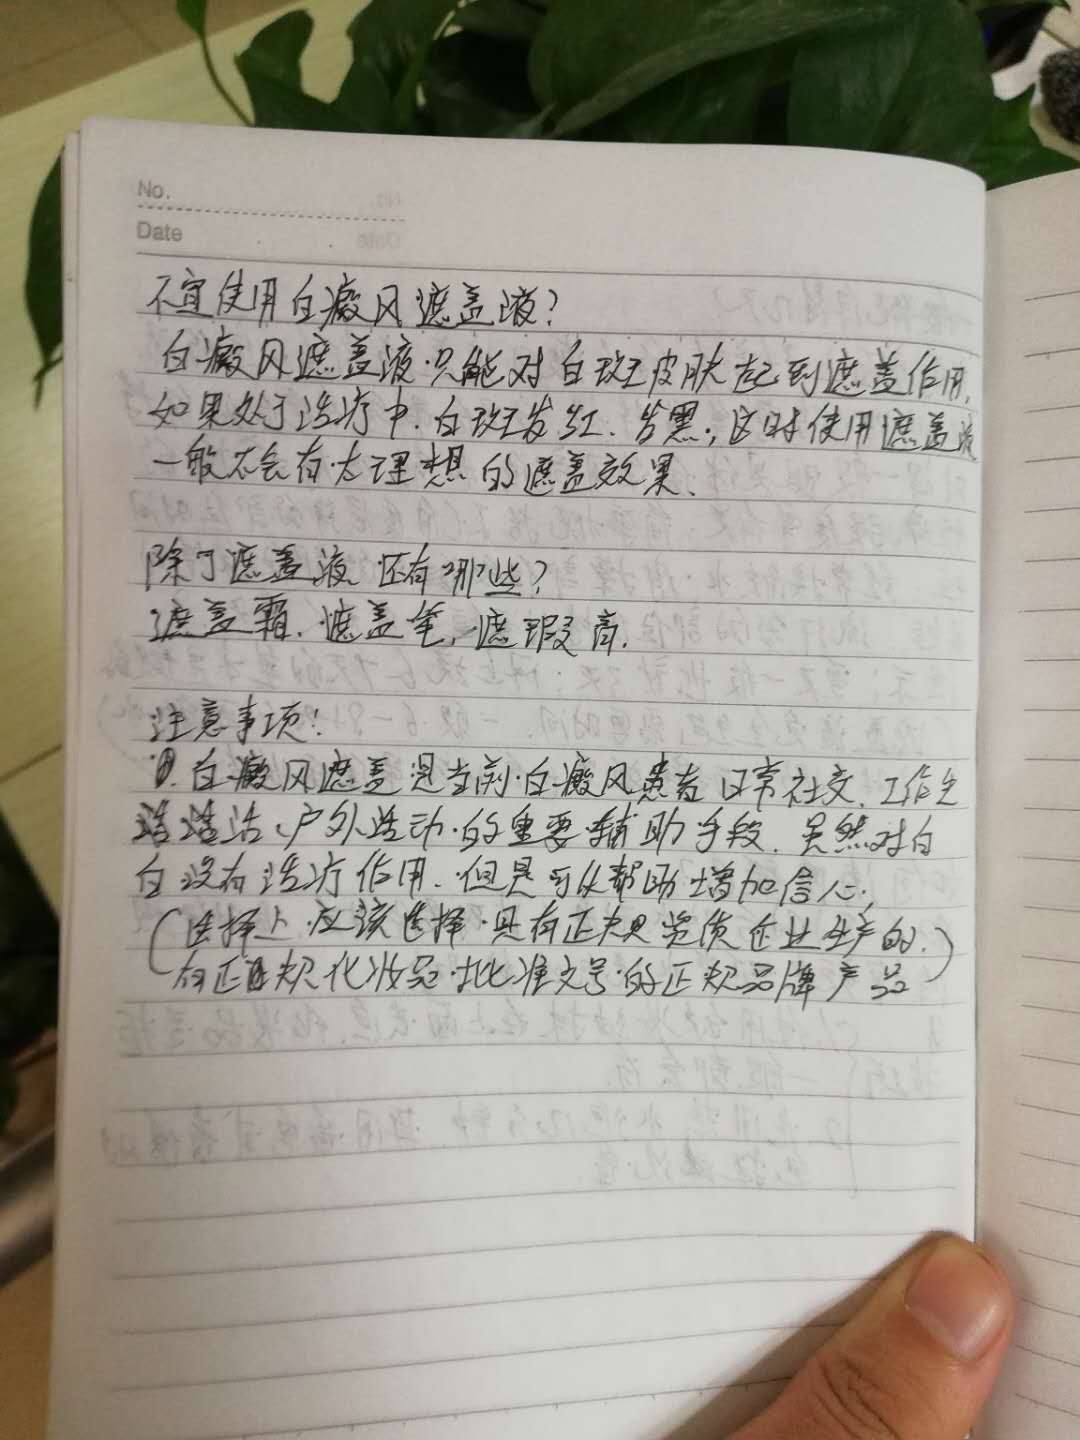 No.
Date
不宜使用白癜风遮盖液？
白癜风遮盖液只能对白斑皮肤起到遮盖作用，
如果处于治疗中，白斑发红、发黑，这时使用遮盖液
一般不会有太理想的遮盖效果、
除了遮盖液还有哪些？
遮盖霜，遮盖笔，遮瑕膏，
注意事项！
①. 白癜风遮盖是当前白癜风患者日常社交、工作生
活、户外活动的重要辅助手段，虽然对白
白没有治疗作用，但是可以帮助增加信心.
（选择上应该选择具有正规资质企业生产的，）
有正规化妆品批准文号的正规品牌产品